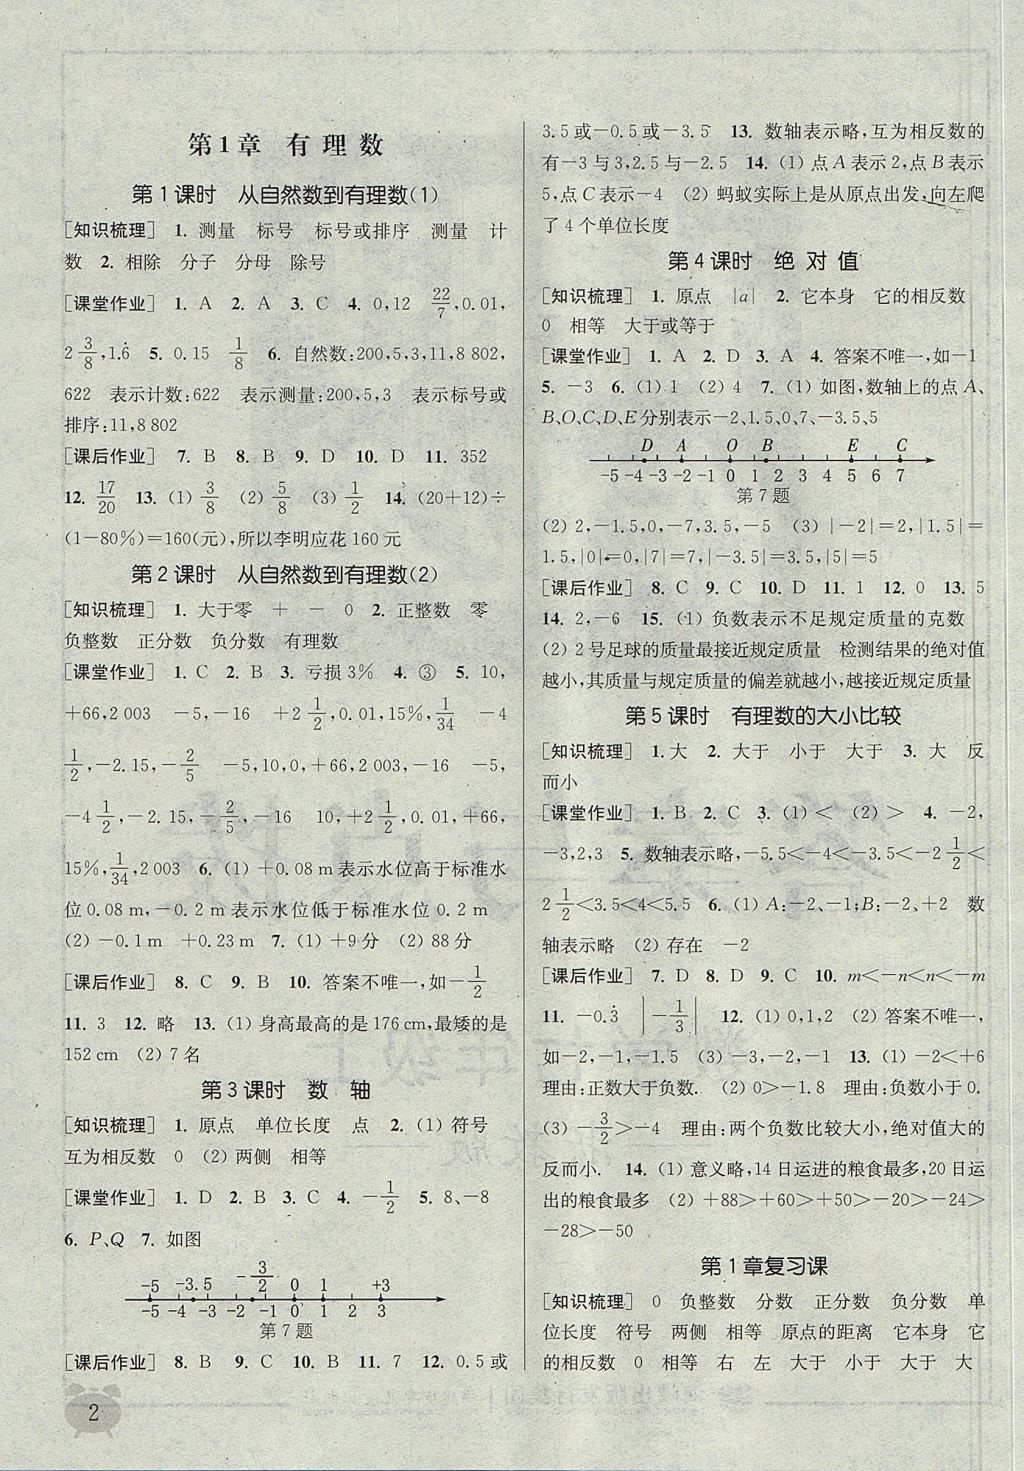 第1章 有理数
第1课时 从自然数到有理数(1)
[知识梳理] 1. 测量 标号 标号或排序 测量 计
数 2. 相除 分子 分母 除号
[课堂作业] 1. A 2. A 3. C 4. 0,12 22/7,0.01,
2 3/8,1.6̇ 5. 0.15 1/8 6. 自然数:200,5,3,11,8 802,
622 表示计数:622 表示测量:200,5,3 表示标号或
排序:11,8 802
[课后作业] 7. B 8. B 9. D 10. D 11. 352
12. 17/20 13. (1) 3/8 (2) 5/8 (3) 1/2 14. (20+12)÷
(1-80%)=160(元),所以李明应花 160 元
第2课时 从自然数到有理数(2)
[知识梳理] 1. 大于零 + - 0 2. 正整数 零
负整数 正分数 负分数 有理数
[课堂作业] 1. C 2. B 3. 亏损3% 4. ③ 5. 10,
+66,2 003 -5,-16 +2 1/2,0.01,15%,1/34 -4
1/2,-2.15,-2/5 -5,10,0,+66,2 003,-16 -5,
-4 1/2,-2.15,-2/5,-16 10,+2 1/2,0.01,+66,
15%,1/34,2003 6. (1) +0.08 m表示水位高于标准水
位0.08 m,-0.2 m表示水位低于标准水位0.2 m
(2) -0.1 m +0.23 m 7. (1) +9分 (2) 88分
[课后作业] 8. C 9. B 10. 答案不唯一,如-1/2
11. 3 12. 略 13. (1) 身高最高的是176 cm,最矮的是
152 cm (2) 7名
第3课时 数 轴
[知识梳理] 1. 原点 单位长度 点 2. (1) 符号
互为相反数 0 (2) 两侧 相等
[课堂作业] 1. D 2. B 3. C 4. -1/2 5. 8、-8
6. P、Q 7. 如图
-5 -3.5 -3/2 0 1 +3
-5 -4 -3 -2 -1 0 1 2 3
第7题
[课后作业] 8. B 9. C 10. B 11. 7 12. 0.5或
2
3.5或-0.5或-3.5 13. 数轴表示略,互为相反数的
有-3与3,2.5与-2.5 14. (1) 点A表示2,点B表示
5,点C表示-4 (2) 蚂蚁实际上是从原点出发,向左爬
了4个单位长度
第4课时 绝对值
[知识梳理] 1. 原点 |a| 2. 它本身 它的相反数
0 相等 大于或等于
[课堂作业] 1. A 2. D 3. A 4. 答案不唯一,如-1
5. -3 6. (1) 1 (2) 4 7. (1) 如图,数轴上的点A、
B、O、C、D、E分别表示-2、1.5、0、7、-3.5、5
D A O B E C
-5 -4 -3 -2 -1 0 1 2 3 4 5 6 7
第7题
(2) 2,-1.5,0,-7,3.5,-5 (3) |-2|=2,|1.5|=
1.5,|0|=0,|7|=7,|-3.5|=3.5,|5|=5
[课后作业] 8. C 9. C 10. D 11. 1 12. 0 13. 5
14. 2,-6 15. (1) 负数表示不足规定质量的克数
(2) 2号足球的质量最接近规定质量 检测结果的绝对值
越小,其质量与规定质量的偏差就越小,越接近规定质量
第5课时 有理数的大小比较
[知识梳理] 1. 大 2. 大于 小于 大于 3. 大 反
而小
[课堂作业] 1. B 2. C 3. (1) < (2) > 4. -2,
-3,2,3 5. 数轴表示略,-5.5<-4<-3.5<-2 1/2<
2 1/2<3.5<4<5.5 6. (1) A:-2、-1;B:-2、+2 数
轴表示略 (2) 存在 -2
[课后作业] 7. D 8. D 9. C 10. m<-n<n<-m
11. -0.3̇ |-1/3| 12. (1) 0,1,2 (2) 答案不唯一,
如-2,-1,-1.5 (3) -3,-2,-1 13. (1) -2<+6
理由:正数大于负数. (2) 0>-1.8 理由:负数小于0.
(3) -3/2>-4 理由:两个负数比较大小,绝对值大的
反而小. 14. (1) 意义略,14日运进的粮食最多,20日运
出的粮食最多 (2) +88>+60>+50>-20>-24>
-28>-50
第1章复习课
[知识梳理] 0 负整数 分数 正分数 负分数 单
位长度 符号 两侧 相等 原点的距离 它本身 它
的相反数 0 相等 右 左 大于 小于 大于 大